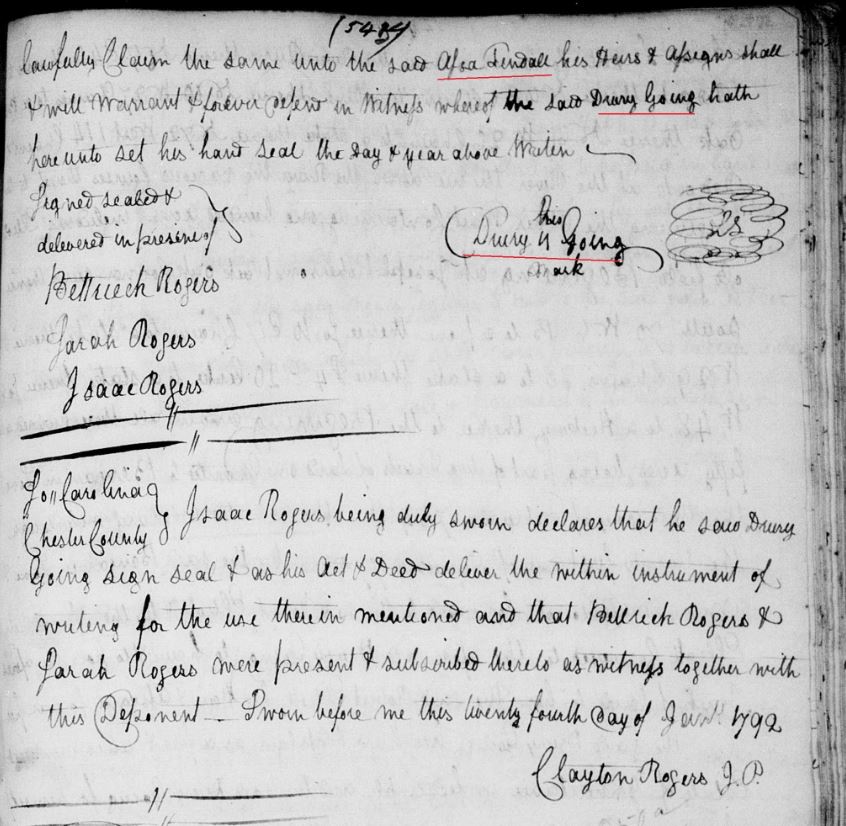 (548)
lawfully Claim the same unto the said Asa Tindall his Heirs & Assigns shall
& will Warrant & forever defend in Witness whereof the said Drury Going hath
here unto set his hand seal the Day & year above Writen
Signed sealed &
delivered in presence of
his
Drury Going
mark
Bettriech Rogers
Sarah Rogers
Isaac Rogers
So Carolina
Chester County
Isaac Rogers being duly sworn declares that he saw Drury
Going sign seal & as his Act & Deed deliver the within instrument of
writing for the use therein mentioned and that Bettrick Rogers &
Sarah Rogers were present & subscribed thereto as witness together with
this Deponent – Sworn before me this twenty fourth Day of 1792
Clayton Rogers J.P.